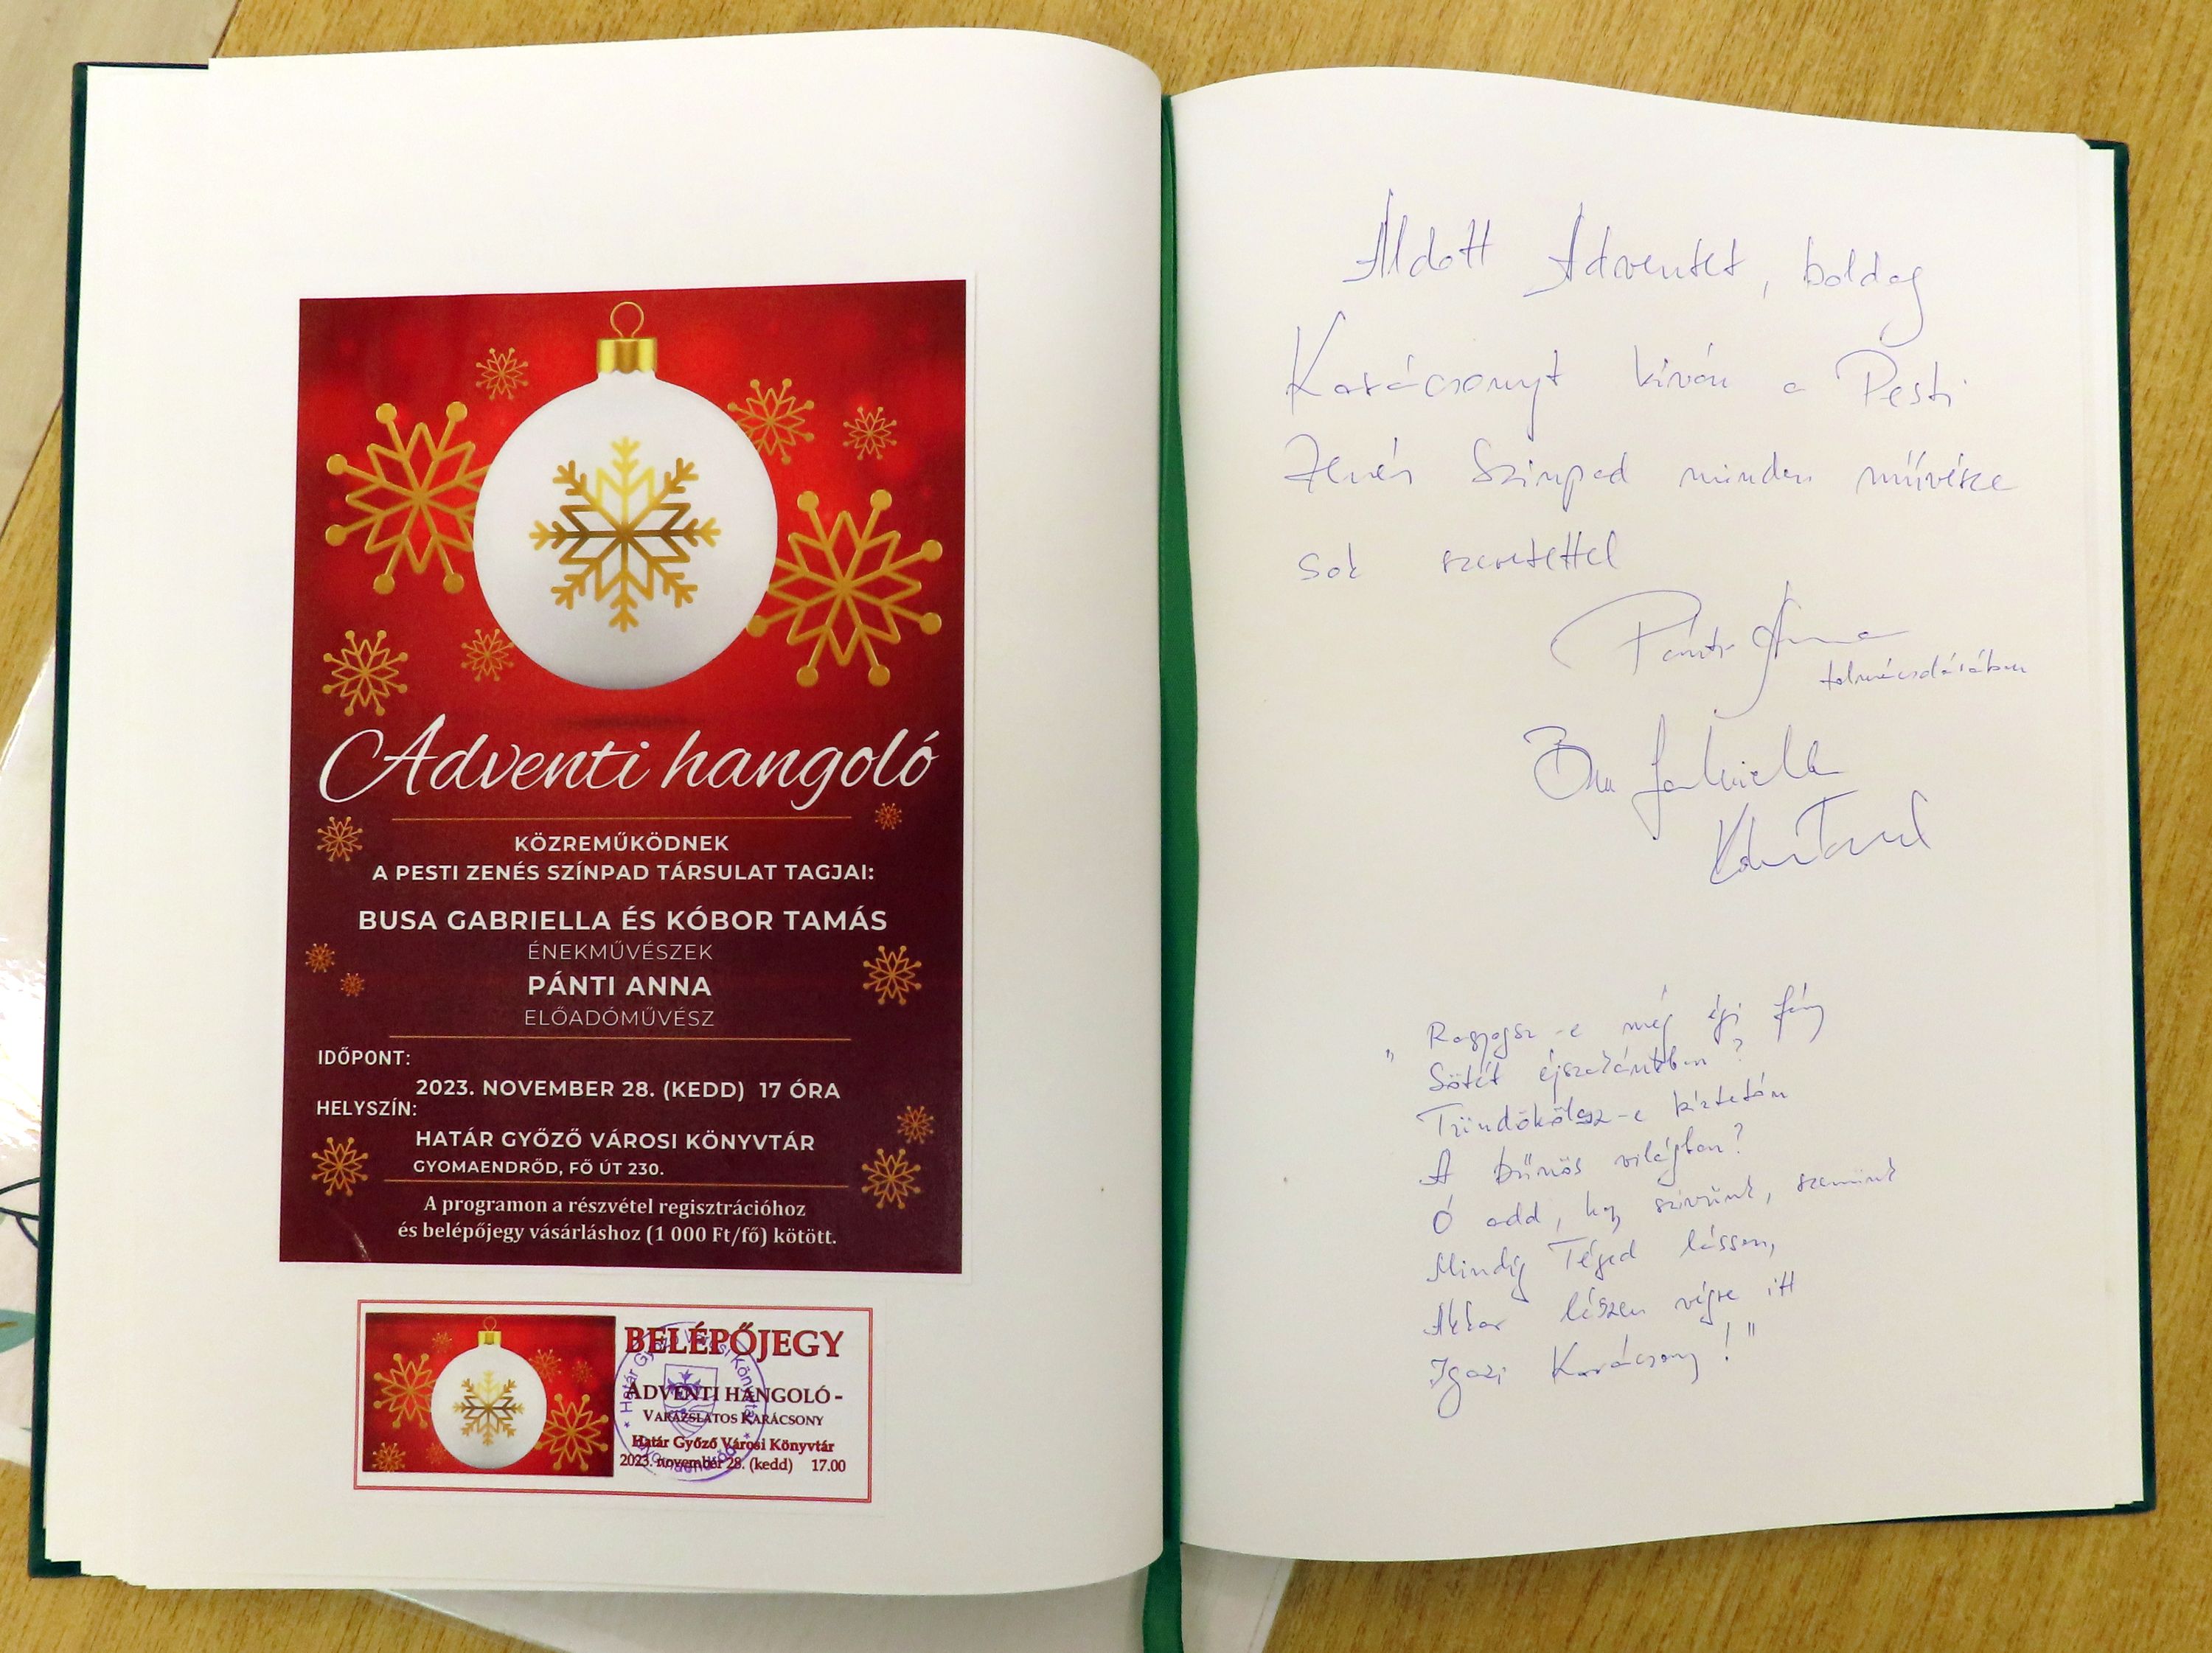 Adventi hangoló
KÖZREMŰKÖDNEK
A PESTI ZENÉS SZÍNPAD TÁRSULAT TAGJAI:
BUSA GABRIELLA ÉS KÓBOR TAMÁS
ÉNEKMŰVÉSZEK
PÁNTI ANNA
ELŐADÓMŰVÉSZ
IDŐPONT:
2023. NOVEMBER 28. (KEDD) 17 ÓRA
HELYSZÍN:
HATÁR GYŐZŐ VÁROSI KÖNYVTÁR
GYOMAENDRŐD, FŐ ÚT 230.
A programon a részvétel regisztrációhoz
és belépőjegy vásárláshoz (1 000 Ft/fő) kötött.
BELÉPŐJEGY
ADVENTI HANGOLÓ -
VARÁZSLATOS KARÁCSONY
Határ Győző Városi Könyvtár
2023. november 28. (kedd) 17.00
* Határ Győző Városi Könyvtár *
Gyomaendrőd
Áldott Adventet, boldog
Karácsonyt kíván a Pesti
Zenés Színpad minden művésze
sok szeretettel
Pánti Anna
tolmácsolásában
Busa Gabriella
Kóbor Tamás
"Ragyogsz-e még égi fény
Sötét éjszakánkban?
Tündökölsz-e biztatón
A bűnös világban?
Ó add, hogy szívünk, szemünk
Mindig Téged lásson,
Akkor lészen végre itt
Igazi Karácsony!"